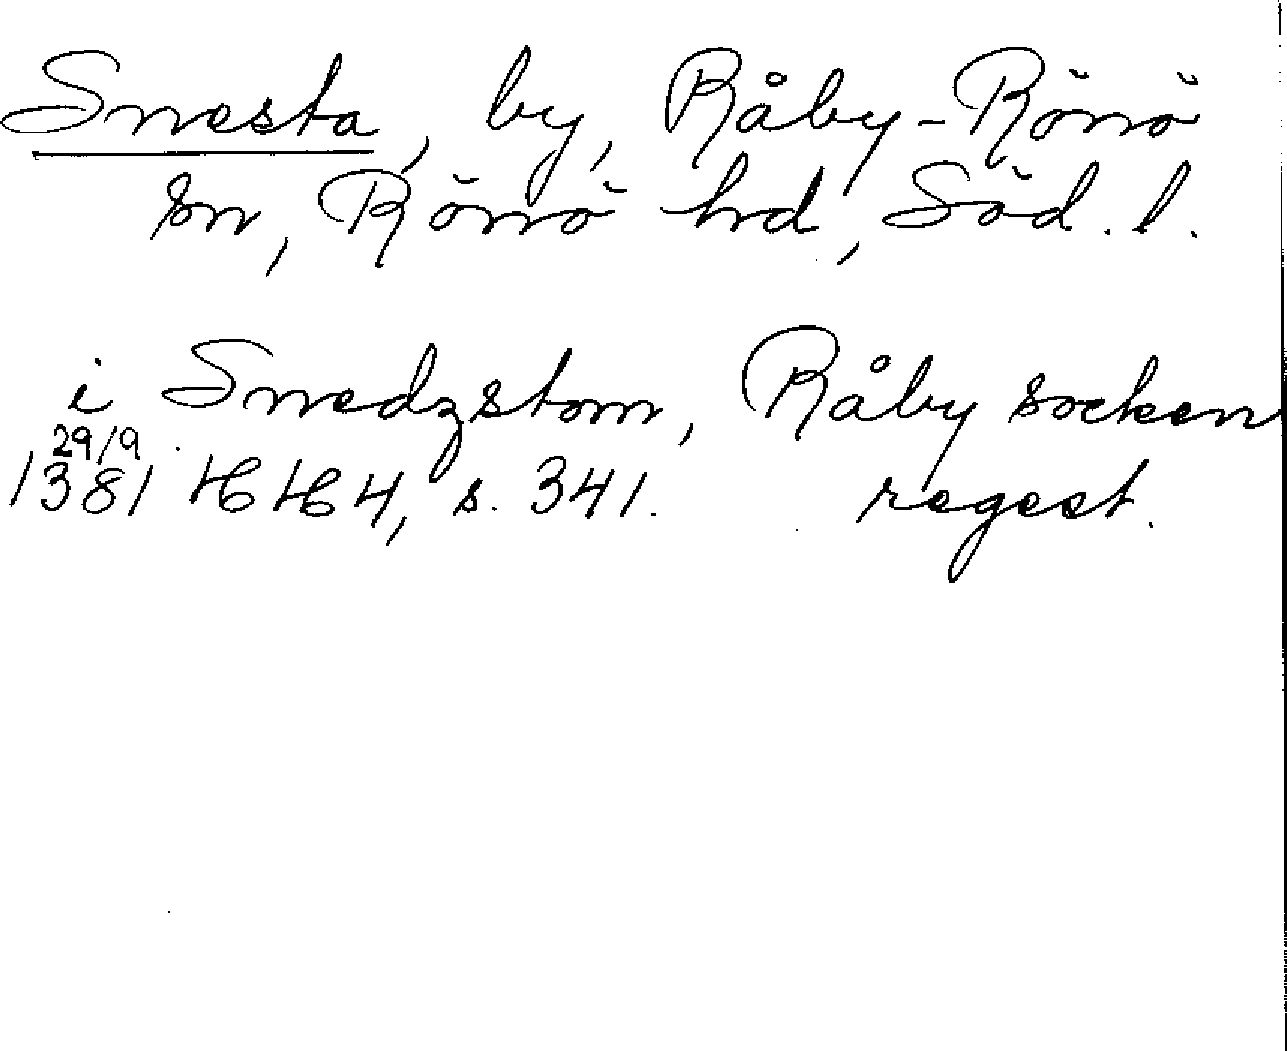 Snesta, by, Råby-Rönö
sn, Rönö hd, Söd. l.
i Snedzstom, Råby socken
29/9
1381 HH 4, s. 341. regest.